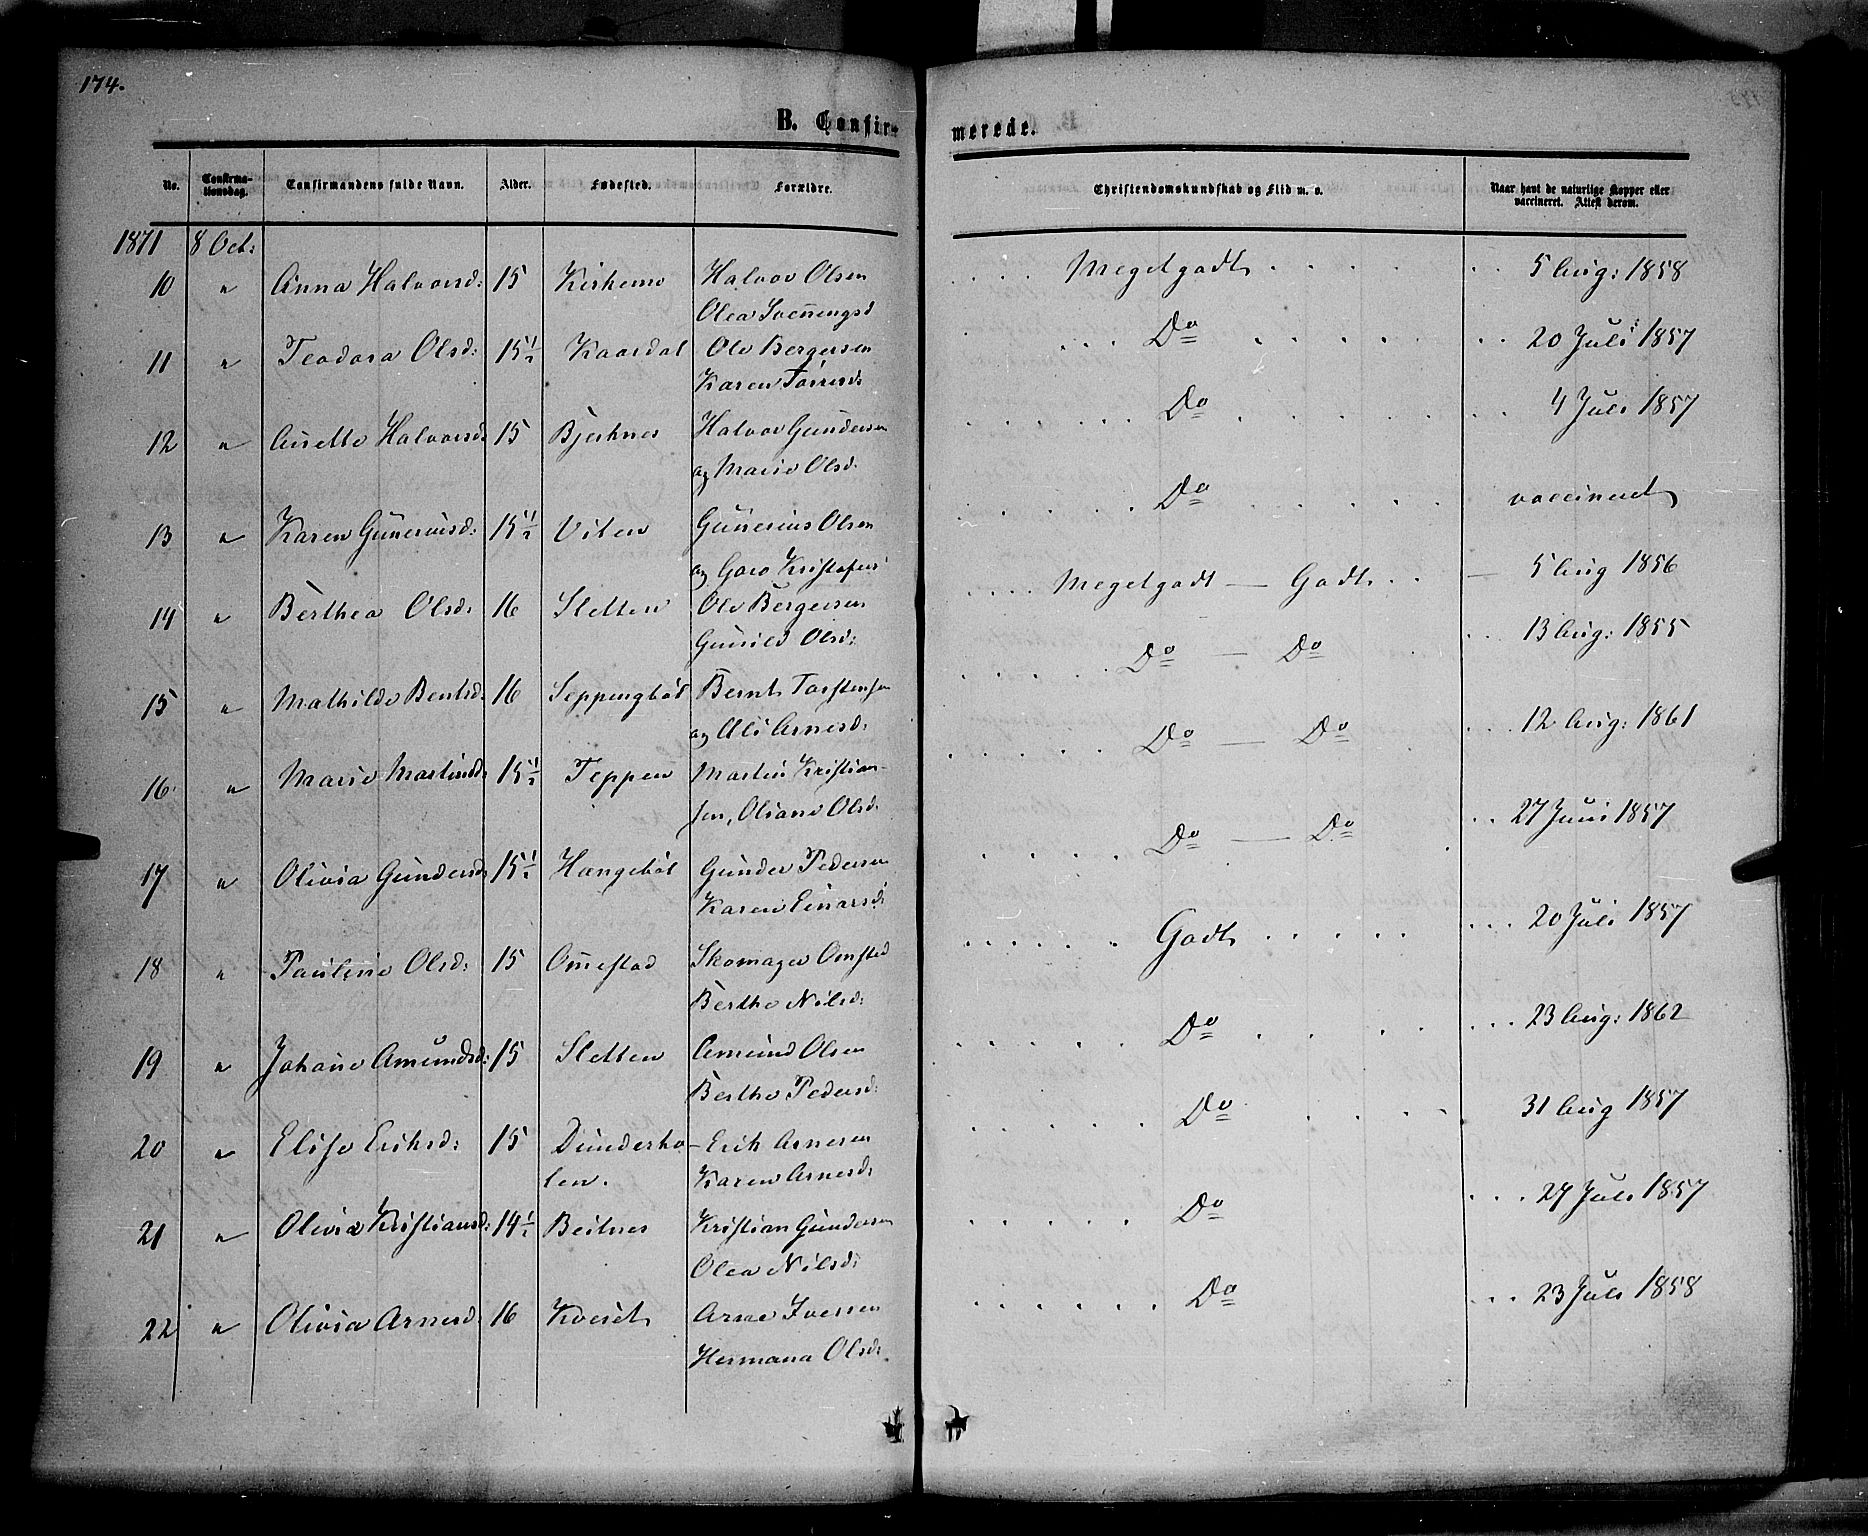 174.
B. Confir-
merede.
No. Confirma-tionsdag. Confirmandens fulde Navn. Alder. Fødested. Forældre. Christendomskundskab og Flid m. v. Naar havt de naturlige Kopper eller vaccineret. Attest derom.
1871 8 Oct:
10 " Anna Halvorsd: 15 Kirkemo Halvor Olsen . . . Megetgodt . . . 5 Aug: 1858
Olea Svenningsd
11 " Teodora Olsd: 15½ Kaardal Ole Bergersen . . . Do . . . 20 Juli 1857
Karen Torresd:
12 " Anette Halvorsd: 15 Bjerknes Halvor Gundersen . . . Do . . . 4 Juli 1857
og Marie Olsd:
13 " Karen Guneriusd: 15½ Viten Gunerius Olsen . . . Do . . . vaccineret
og Goro Kristofers
14 " Berthea Olsd: 16 Sletten Ole Bergersen . . . Megetgodt — Godt . . — 5 Aug 1856
Gunild Olsd:
15 " Mathilde Berntsd: 16 Seppengbøl Bernt Torstensen . . . Do — Do . . . 13 Aug: 1855
og Oli Arnesd:
16 " Marie Martinsd: 15½ Teppen Martin Kristian- . . . Do — Do . . . 12 Aug: 1861
sen, Oliane Olsd:
17 " Olivia Gundersd: 15½ Hangebøl Gunder Pedersen . . . Do — Do . . . 27 Juni 1857
Karen Einarsd:
18 " Pauline Olsd: 15 Omestad Skomager Omsted . . . Godt . . . 20 Juli 1857
Berthe Nilsd:
19 " Johane Amundsd: 15 Sletten Amund Olsen . . . Do . . . 23 Aug: 1862
Berthe Pedersd:
20 " Elise Eriksd: 15 Dunderho- Erik Arnesen . . . Do . . . 31 Aug 1857
len. Karen Arnesd:
21 " Olivia Kristiansd: 14½ Beitnes Kristian Gundersen . . . Do . . . 27 Juli 1857
Olea Nilsd:
22 " Olivia Arnesd 16 Kveset Arne Iversen . . . Do . . . 23 Juli 1858
Hermana Olsd: